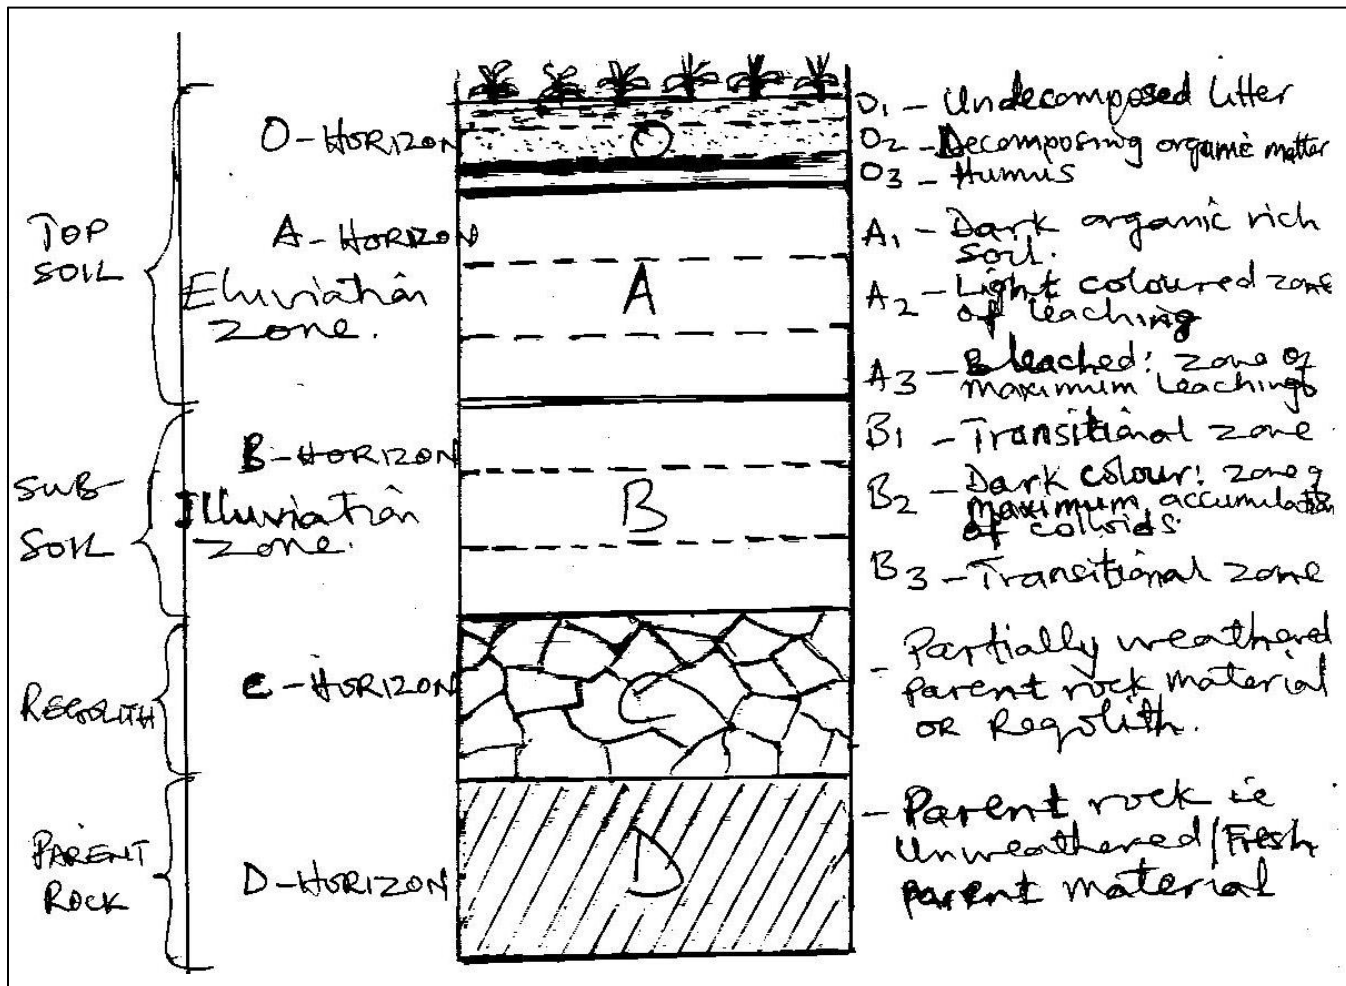 TOP
SOIL
SUB-
SOIL
REGOLITH
PARENT
ROCK
O-HORIZON
A-HORIZON
Eluviation
zone.
B-HORIZON
Illuviation
zone.
C-HORIZON
D-HORIZON
O
A
B
C
D
O1 - Undecomposed litter
O2 - Decomposing organic matter
O3 - Humus
A1 - Dark organic rich
soil.
A2 - Light coloured zone
of leaching
A3 - Bleached: zone of
maximum leaching
B1 - Transitional zone
B2 - Dark colour: zone of
maximum accumulation
of colloids
B3 - Transitional zone
- Partially weathered
parent rock material
or Regolith.
- Parent rock ie
Unweathered/Fresh
parent material